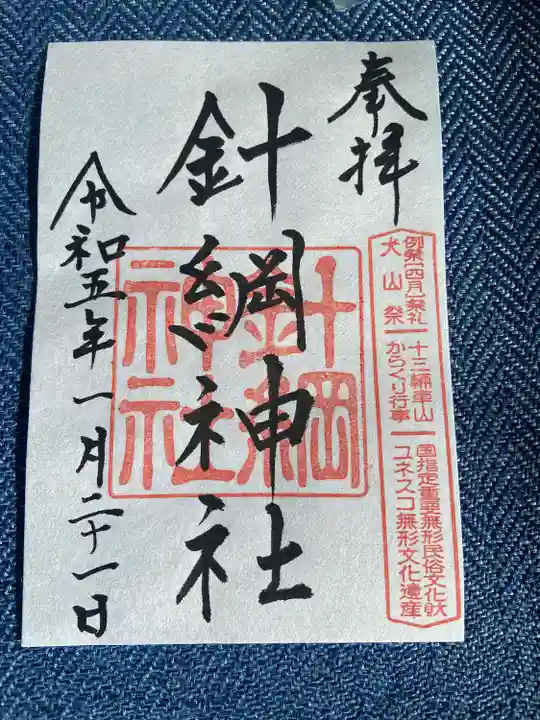 奉拝
例祭【四月】祭礼
犬山祭
十三輌車山
からくり行事
国指定重要無形民俗文化財
ユネスコ無形文化遺産
針綱神社
針綱
神社
令和五年一月二十一日